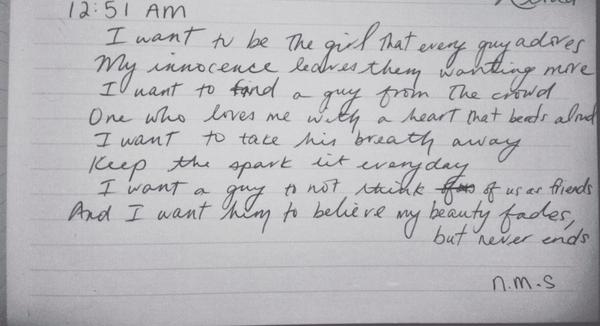 12:51 AM
I want to be the girl that every guy adores
My innocence leaves them wanting more
I want to find a guy from the crowd
One who loves me with a heart that beats aloud
I want to take his breath away
Keep the spark lit everyday
I want a guy to not think of us as friends
And I want him to believe my beauty fades,
but never ends
n.m.s